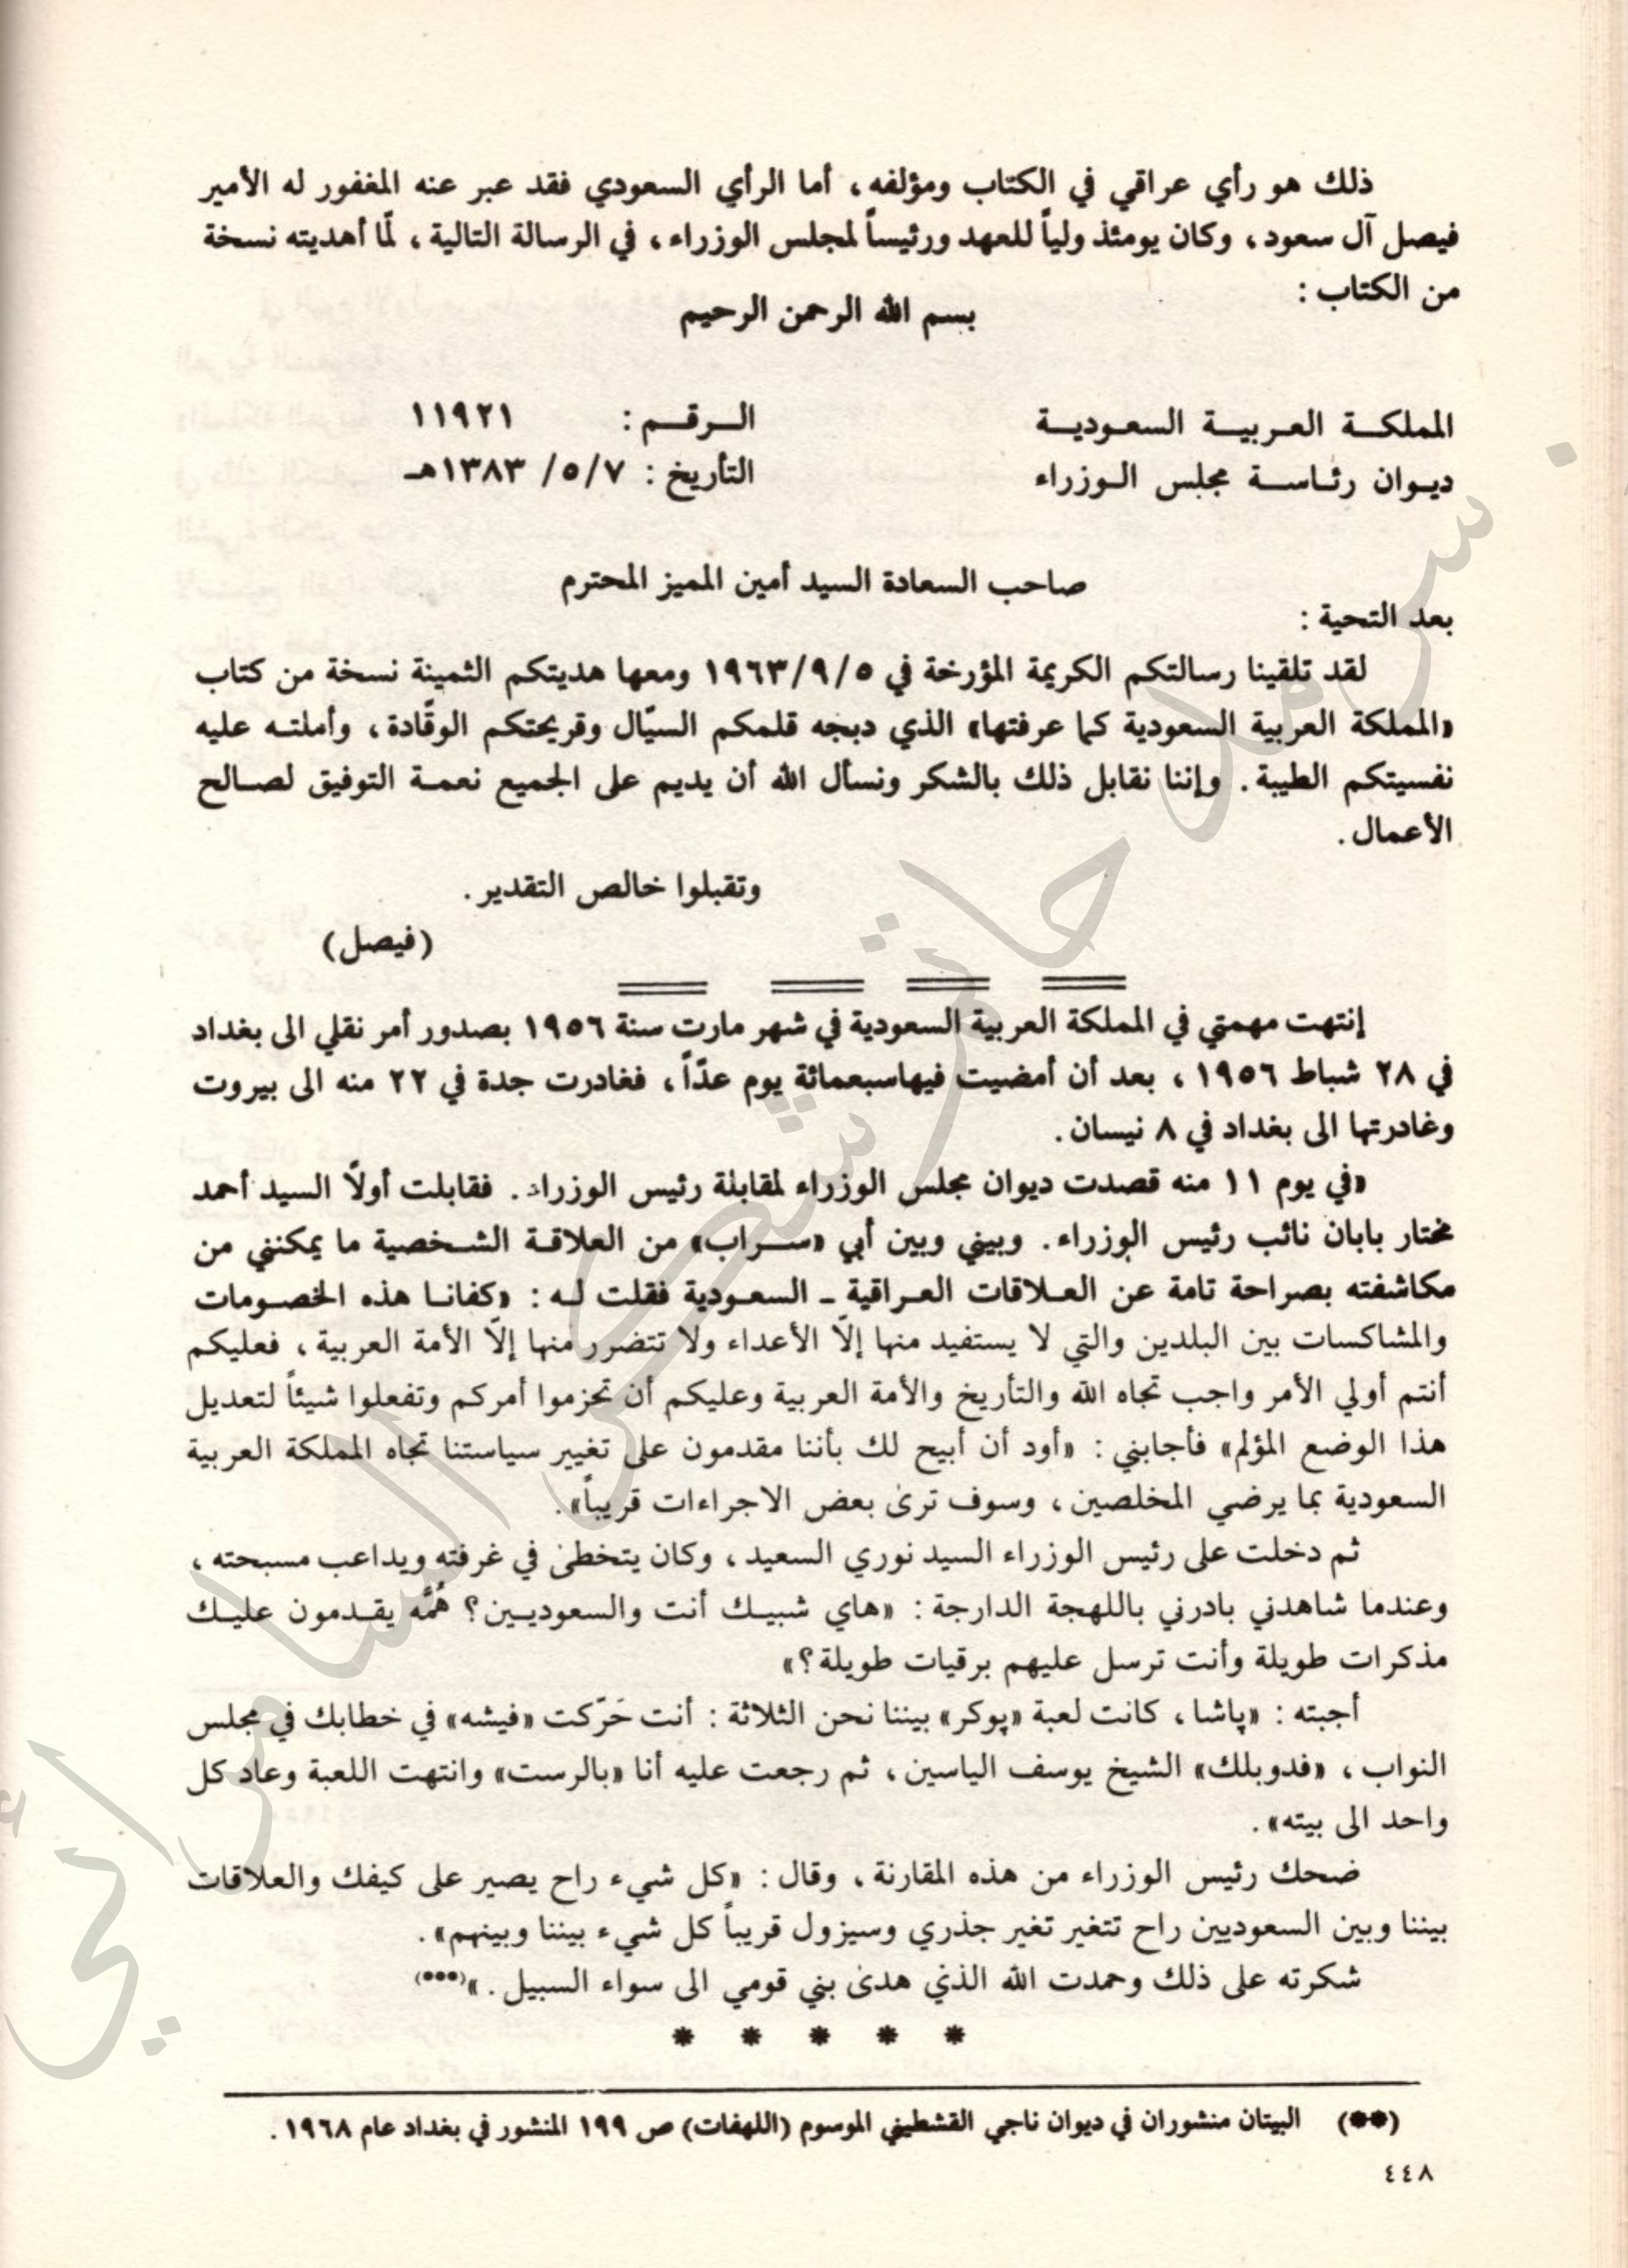 ذلك هو رأي عراقي في الكتاب ومؤلفه، أما الرأي السعودي فقد عبر عنه المغفور له الأمير
فيصل آل سعود، وكان يومئذ ولياً للعهد ورئيساً لمجلس الوزراء، في الرسالة التالية، لمّا أهديته نسخة
من الكتاب :
بسم الله الرحمن الرحيم
المملكة العربية السعودية الرقم : ١١٩٢١
ديوان رئاسة مجلس الوزراء التأريخ : ٧/ ٥/ ١٣٨٣هـ
صاحب السعادة السيد أمين المميز المحترم
بعد التحية :
لقد تلقينا رسالتكم الكريمة المؤرخة في ١٩٦٣/٩/٥ ومعها هديتكم الثمينة نسخة من كتاب
«المملكة العربية السعودية كما عرفتها» الذي دبجه قلمكم السيّال وقريحتكم الوقّادة، وأملته عليه
نفسيتكم الطيبة. وإننا نقابل ذلك بالشكر ونسأل الله أن يديم على الجميع نعمة التوفيق لصالح
الأعمال.
وتقبلوا خالص التقدير.
(فيصل)
إنتهت مهمتي في المملكة العربية السعودية في شهر مارت سنة ١٩٥٦ بصدور أمر نقلي الى بغداد
في ٢٨ شباط ١٩٥٦ ، بعد أن أمضيت فيهاسبعمائة يوم عدّاً، فغادرت جدة في ٢٢ منه الى بيروت
وغادرتها الى بغداد في ٨ نيسان.
«في يوم ١١ منه قصدت ديوان مجلس الوزراء لمقابلة رئيس الوزراء. فقابلت أولًا السيد أحمد
مختار بابان نائب رئيس الوزراء. وبيني وبين أبي «سراب» من العلاقة الشخصية ما يمكنني من
مكاشفته بصراحة تامة عن العلاقات العراقية ـ السعودية فقلت له : «كفانا هذه الخصومات
والمشاكسات بين البلدين والتي لا يستفيد منها إلّا الأعداء ولا تتضرر منها إلّا الأمة العربية، فعليكم
أنتم أولي الأمر واجب تجاه الله والتأريخ والأمة العربية وعليكم أن تحزموا أمركم وتفعلوا شيئاً لتعديل
هذا الوضع المؤلم» فأجابني : «أود أن أبيح لك بأننا مقدمون على تغيير سياستنا تجاه المملكة العربية
السعودية بما يرضي المخلصين، وسوف ترى بعض الاجراءات قريباً».
ثم دخلت على رئيس الوزراء السيد نوري السعيد، وكان يتخطى في غرفته ويداعب مسبحته،
وعندما شاهدني بادرني باللهجة الدارجة : «هاي شبيك أنت والسعوديين؟ هُمَّه يقدمون عليك
مذكرات طويلة وأنت ترسل عليهم برقيات طويلة؟»
أجبته : «پاشا، كانت لعبة «پوكر» بيننا نحن الثلاثة : أنت حَرّكت «فيشه» في خطابك في مجلس
النواب، «فدوبلك» الشيخ يوسف الياسين، ثم رجعت عليه أنا «بالرست» وانتهت اللعبة وعاد كل
واحد الى بيته».
ضحك رئيس الوزراء من هذه المقارنة، وقال : «كل شيء راح يصير على كيفك والعلاقات
بيننا وبين السعوديين راح تتغير تغير جذري وسيزول قريباً كل شيء بيننا وبينهم».
شكرته على ذلك وحمدت الله الذي هدى بني قومي الى سواء السبيل.»(***)
* * * * *
(**) البيتان منشوران في ديوان ناجي القشطيني الموسوم (اللهفات) ص ١٩٩ المنشور في بغداد عام ١٩٦٨.
٤٤٨